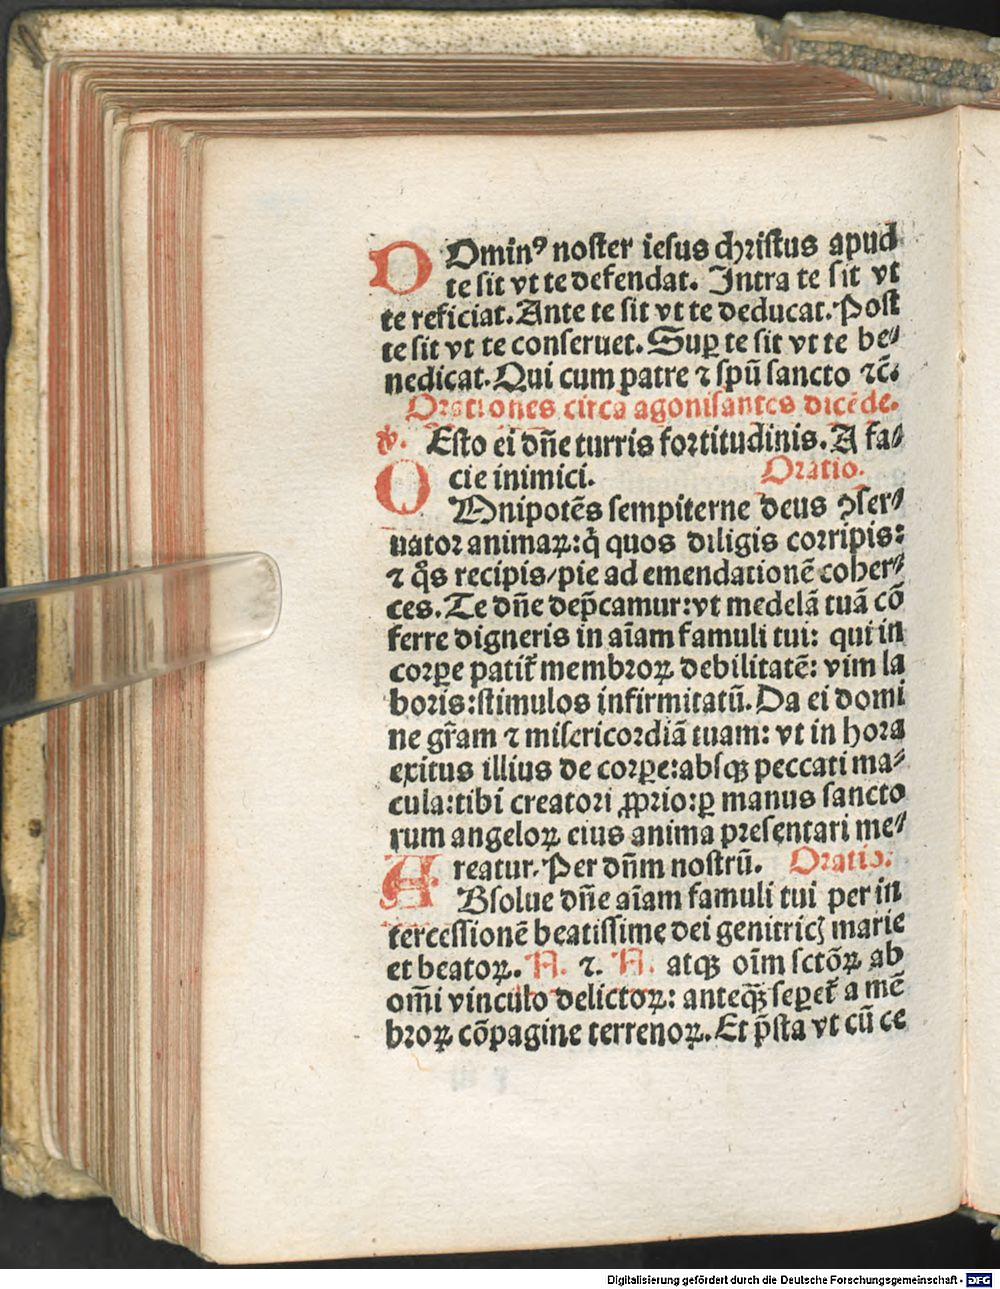 DOminꝰ noster iesus christus apud
te sit vt te defendat. Intra te sit vt
te reficiat. Ante te sit vt te deducat. Post
te sit vt te conseruet. Suꝑ te sit vt te be⸗
nedicat. Qui cum patre ⁊ spũ sancto ⁊c̃.
Orationes circa agonisantes dicẽde.
v̾. Esto ei dñe turris fortitudinis. A fa⸗
cie inimici. Oratio.
OMnipotẽs sempiterne deus ꝯser⸗
uator animaꝝ: q̃ quos diligis corripis:
⁊ q̃s recipis/ pie ad emendationẽ coher⸗
ces. Te dñe dep̃camur: vt medelã tuã cõ
ferre digneris in aĩam famuli tui: qui in
corꝑe patit̃ membroꝝ debilitatẽ: vim la
boris: stimulos infirmitatũ. Da ei domi
ne gr̃am ⁊ misericordiã tuam: vt in hora
exitus illius de corꝑe: absqꝫ peccati ma⸗
cula: tibi creatori ꝓprio: ꝑ manus sancto
rum angeloꝝ eius anima presentari me⸗
reatur. Per dñm nostrũ. Oratio.
ABsolue dñe aĩam famuli tui per in
tercessionẽ beatissime dei genitricꝭ marie
et beatoꝝ. N. ⁊. N. atqꝫ oĩm sctõꝝ ab
om̃i vinculo delictoꝝ: anteq̃ꝫ seꝑet̃ a mẽ
broꝝ cõpagine terrenoꝝ. Et p̃sta vt cũ ce
Digitalisierung gefördert durch die Deutsche Forschungsgemeinschaft - DFG